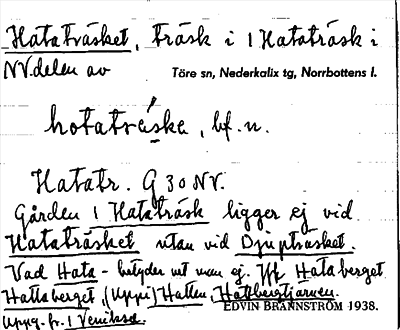 Hataträsket, träsk i 1 Hataträsk i
NV.delen av Töre sn, Nederkalix tg, Norrbottens l.
hotaträske, bf. n.
Hatatr. G 30 NV.
Gården 1 Hataträsk ligger ej vid
Hataträsket utan vid Djupträsket.
Vad Hata - betyder vet man ej. Jfr Hataberget
Hattaberget, (Uppi) Hatten, Hattbergtjärnen.
EDVIN BRÄNNSTRÖM 1938.
Uppg. fr. 1